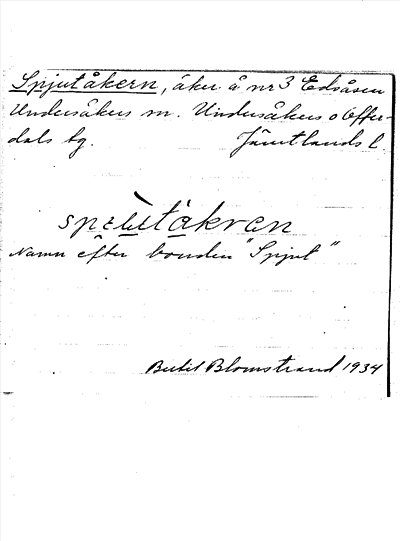 Spjutåkern, åker å nr 3 Edsåsen
Undersåkers sn. Undersåkers o Offer-
dals tg. Jämtlands l.
Namn efter bonden "Spjut"
Bertil Blomstrand 1934